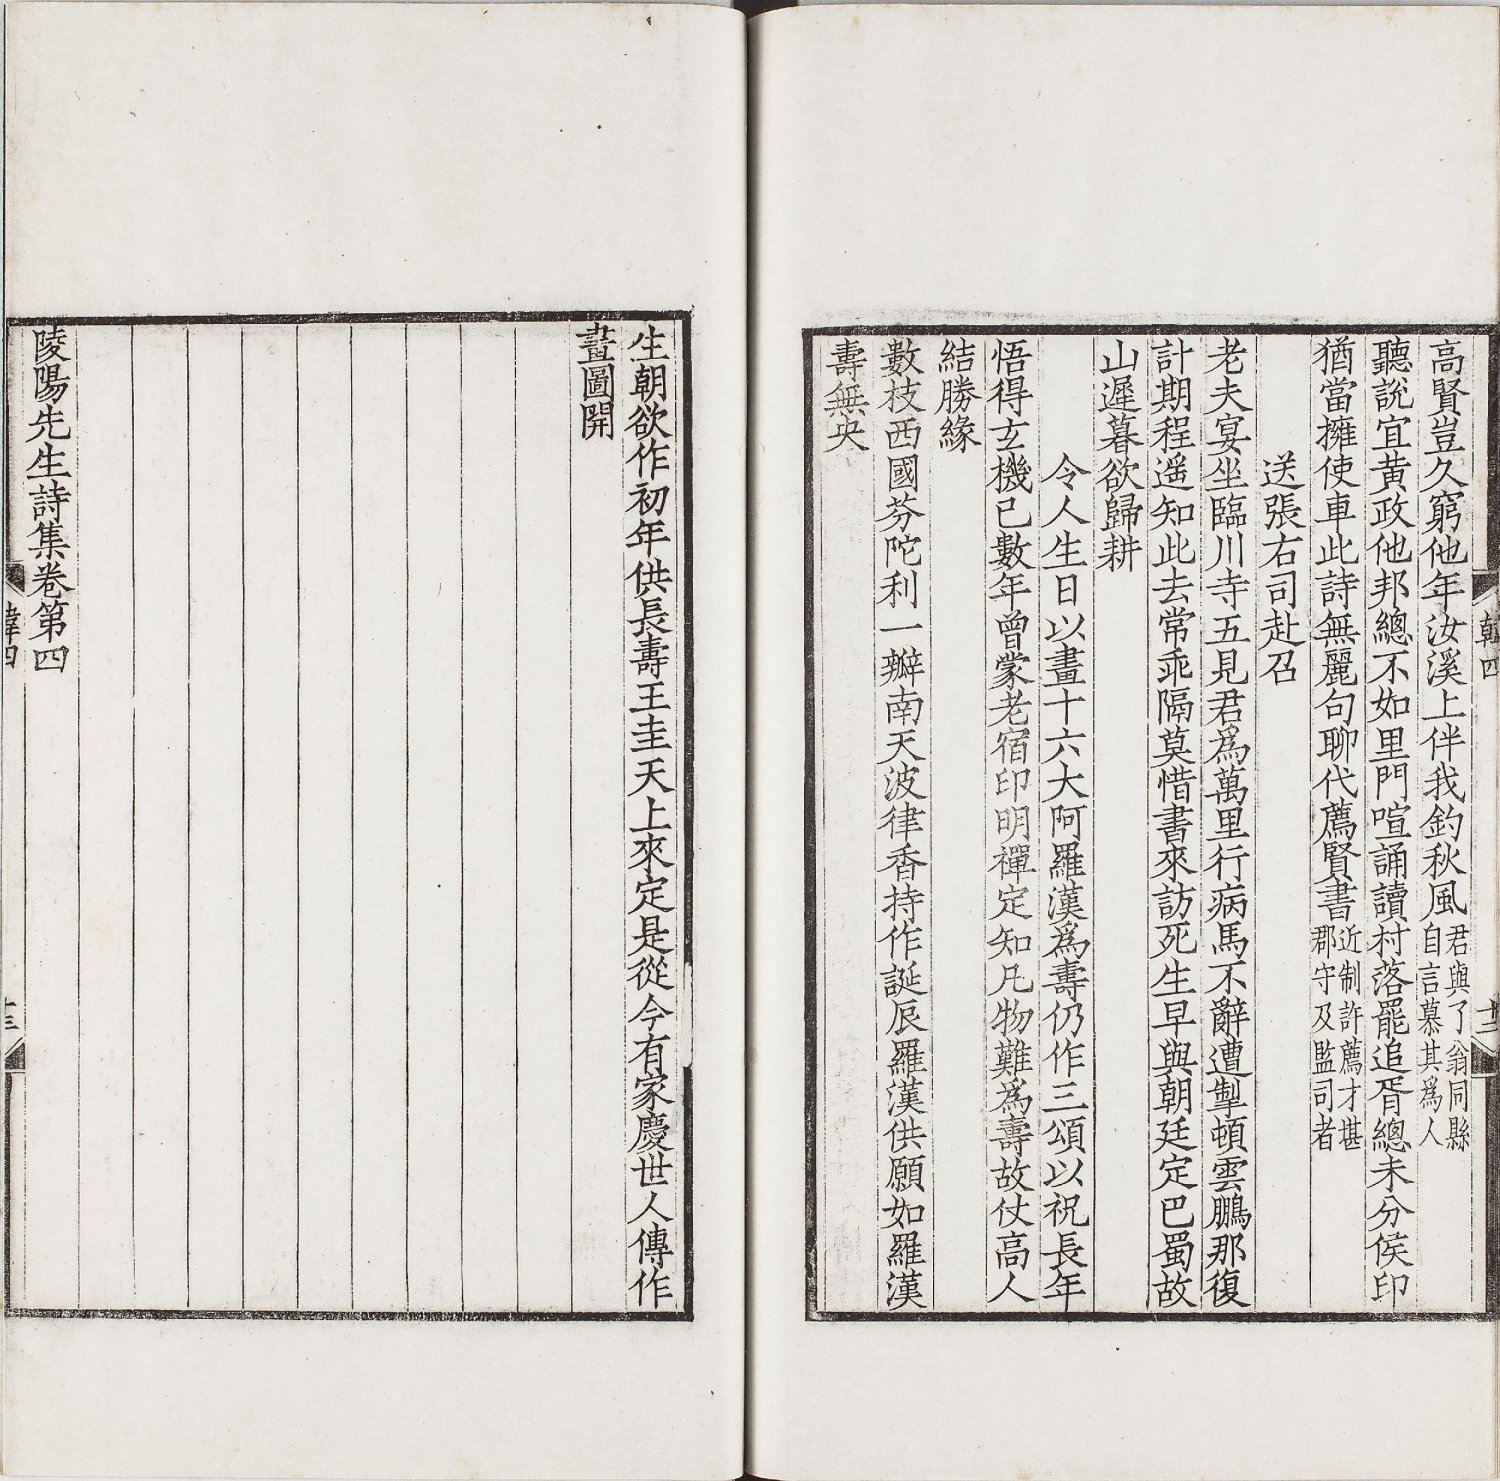 高賢豈久窮他年汝溪上伴我釣秋風君與了翁同縣
自言慕其爲人
聽說宜黃政他邦總不如里門喧誦讀村落罷追胥總未分侯印
猶當擁使車此詩無麗句聊代薦賢書近制許薦才甚
郡守及監司者
送張右司赴召
老夫宴坐臨川寺五見君爲萬里行病馬不辭遭掣頓雲鵬那復
計期程遥知此去常乖隔莫惜書來訪死生早與朝廷定巴蜀故
山遲暮欲歸耕
令人生日以畫十六大阿羅漢爲壽仍作三頌以祝長年
悟得玄機已數年曾蒙老宿印明禪定知凡物難爲壽故仗高人
結勝緣
數枝西國芬陀利一瓣南天波律香持作誕辰羅漢供願如羅漢
壽無央
韓四
十二
生朝欲作初年供長壽王圭天上來定是從今有家慶世人傳作
畫圖開
陵陽先生詩集卷第四
韓四
十三